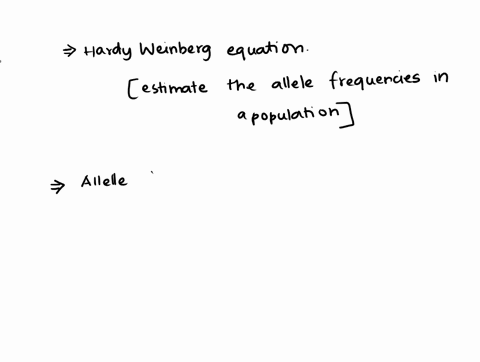 ⇒ Hardy Weinberg equation.
[estimate the allele frequencies in
a population]
⇒ Allele